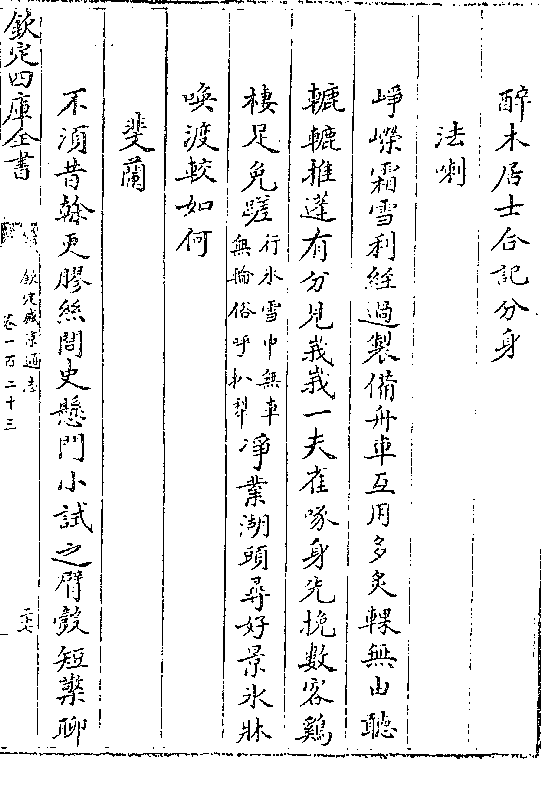 醉木居士合記分身
法喇
崢嶸霜雪利經過製備舟車互用多炙輠無由聽
轆轆推蓬有分見峩峩一夫雀啄身先挽數客鷄
棲足免蹉行冰雪中無車無輪俗呼扒犁淨業湖頭尋好景冰牀
喚渡較如何
斐蘭
不須昔榦更膠絲閭史懸門小試之臂彀短檠聊
欽定四庫全書
欽定盛京通志
卷一百二十三